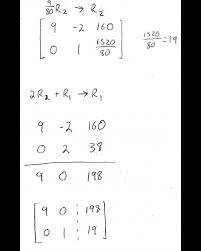 9/80 R₂ → R₂
[ 9 -2 160 ]
[ 0 1 1520/80 ] 1520/80 = 19
2R₂ + R₁ → R₁
9 -2 160
0 2 38
9 0 198
[ 9 0 | 198 ]
[ 0 1 | 19 ]